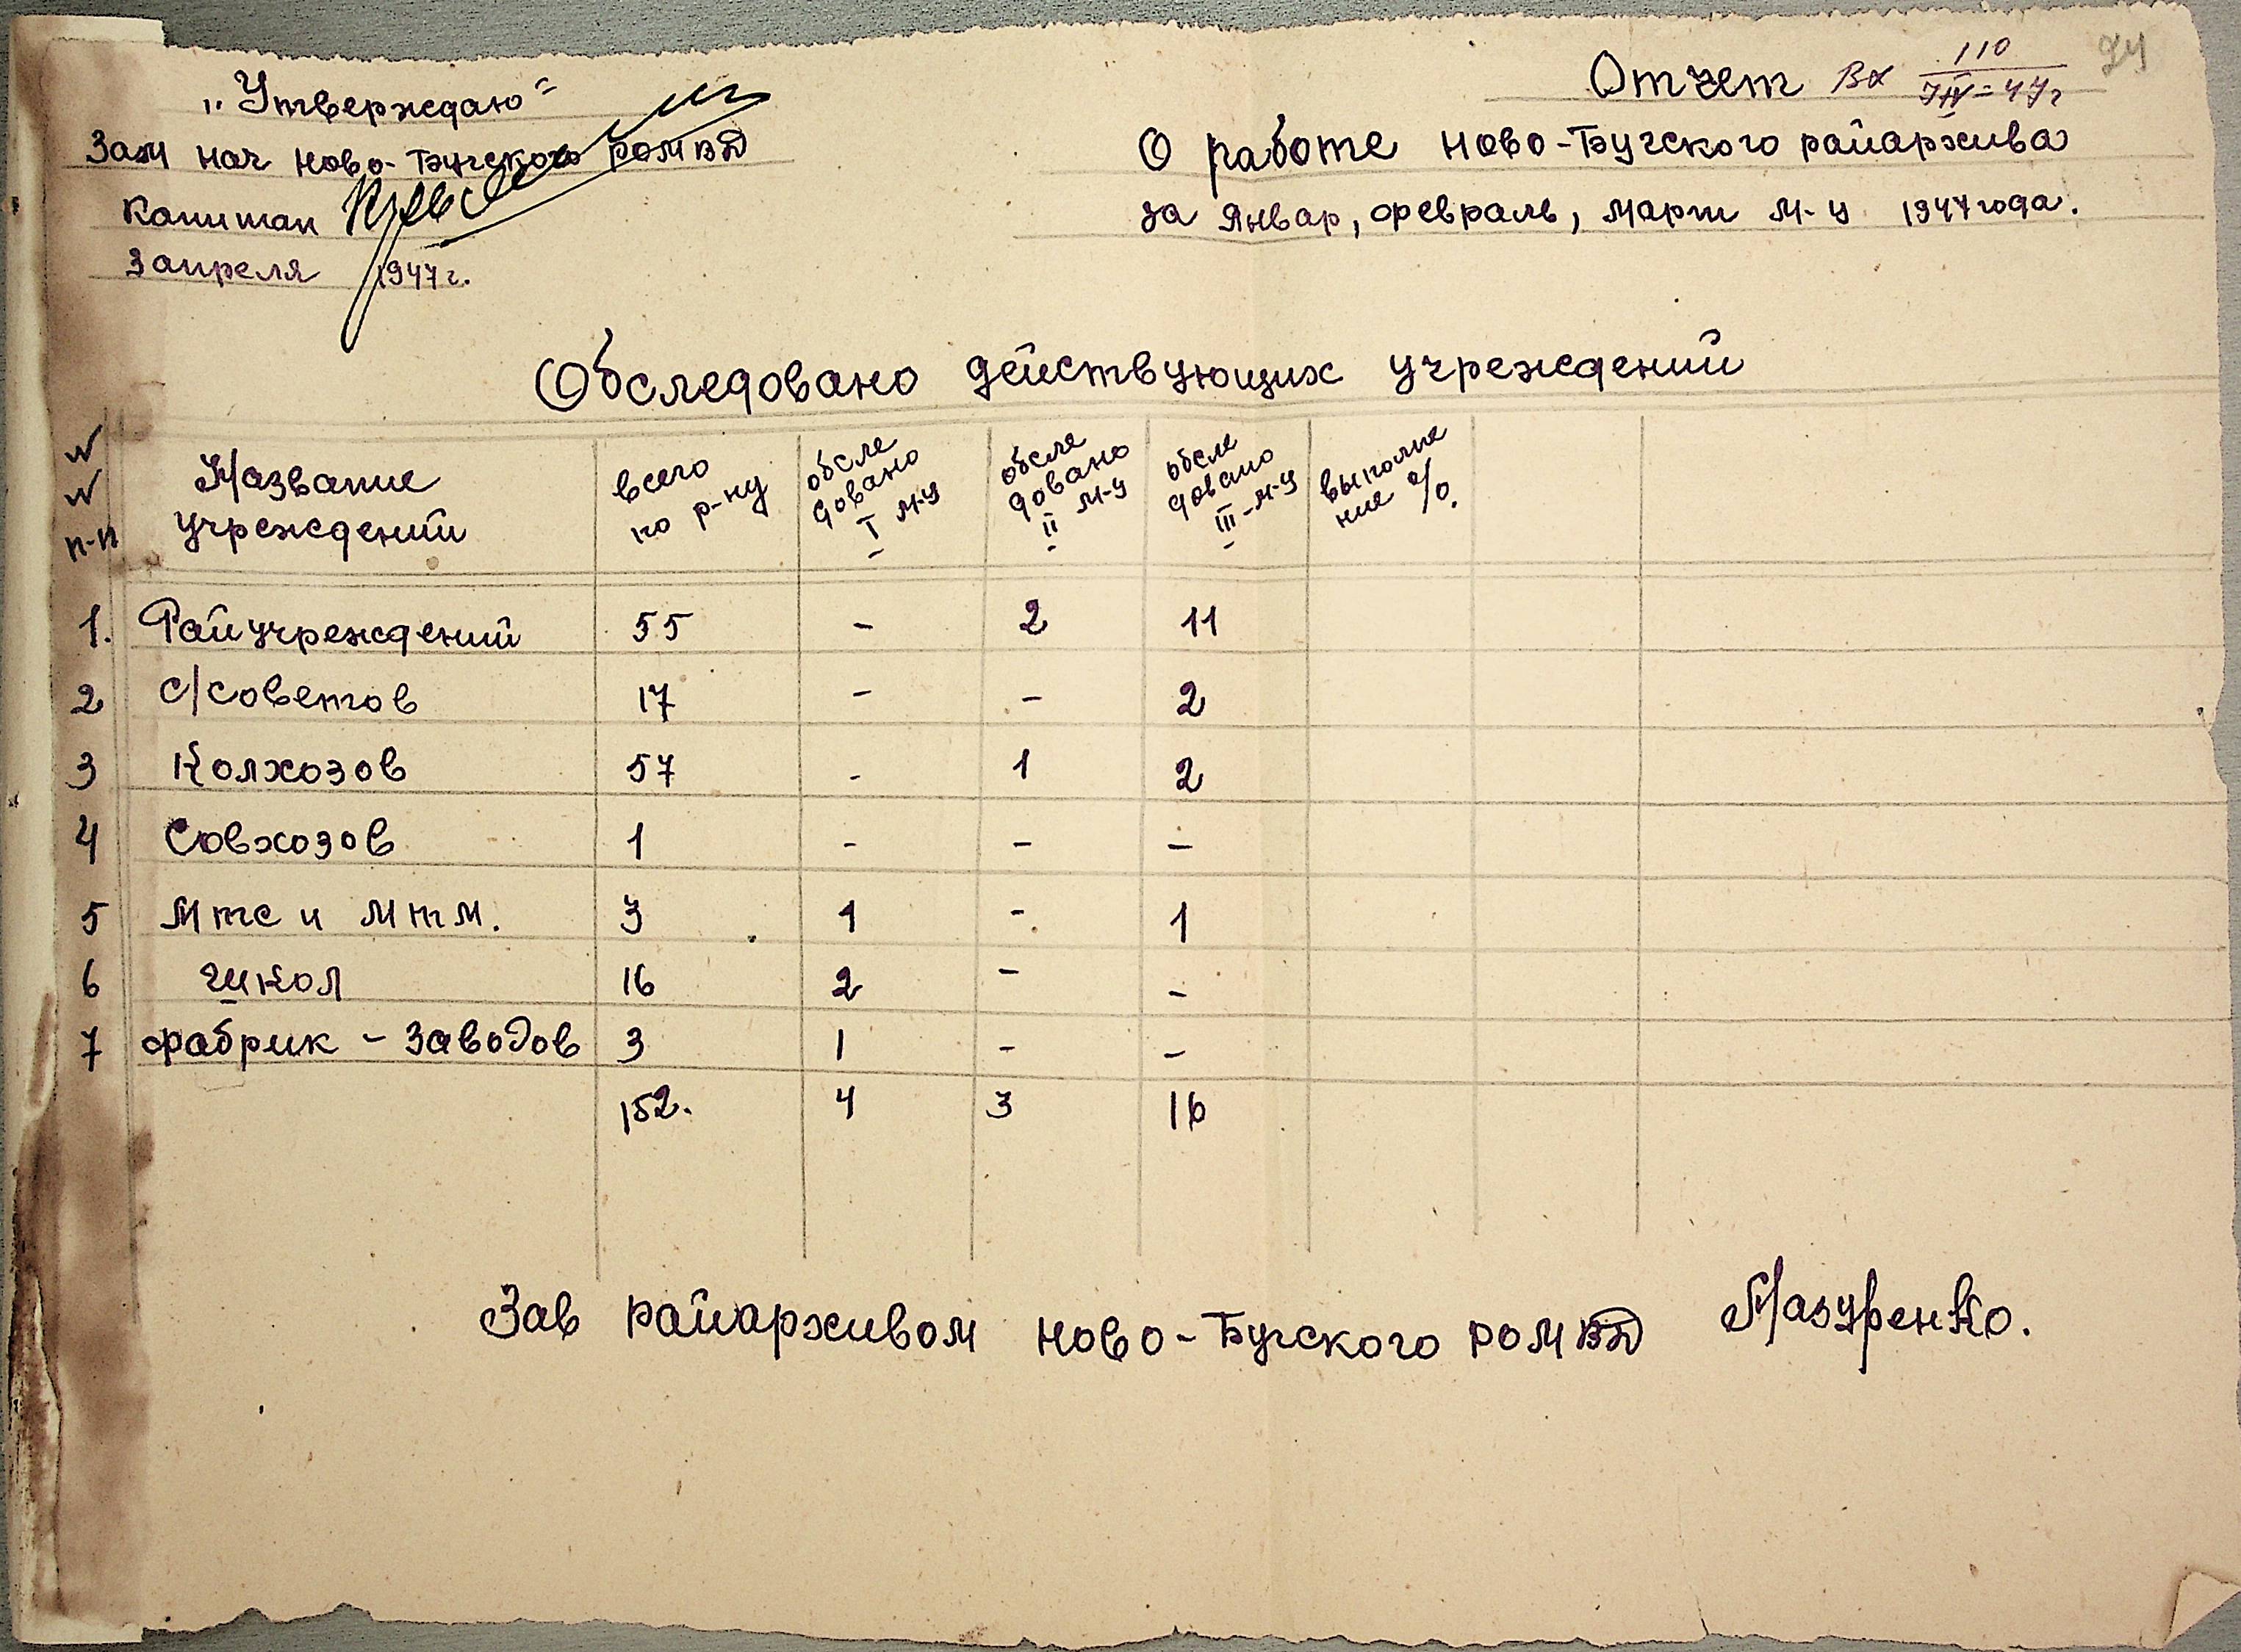 „Утверждаю"
Зам нач Ново-Бугского РОМВД
Капитан
3 апреля 1947 г.
Отчет Вх 110
IV=47г
О работе Ново-Бугского райархива
за Январ, февраль, март м-ц 1947 года.
Обследовано действующих учреждений
№ № п-п | Название учреждений | всего по р-ну | обследовано I м-ц | обследовано II м-ц | обследовано III-м-ц | выполнение %.
1. Райучреждений 55 - 2 11
2 С/советов 17 - - 2
3 Колхозов 57 - 1 2
4 Совхозов 1 - - -
5 Мтс и Мтм. 3 1 - 1
6 школ 16 2 - -
7 фабрик - заводов 3 1 - -
152. 4 3 16
Зав райархивом Ново-Бугского РОМВД Мазуренко.